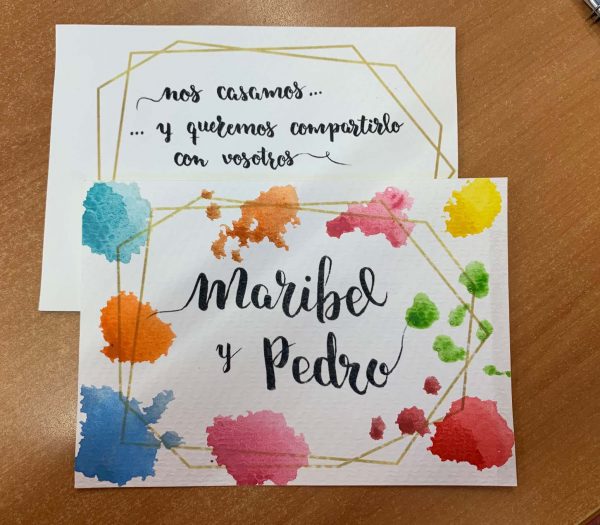 nos casamos...
... y queremos compartirlo
con vosotros
Maribel
y Pedro